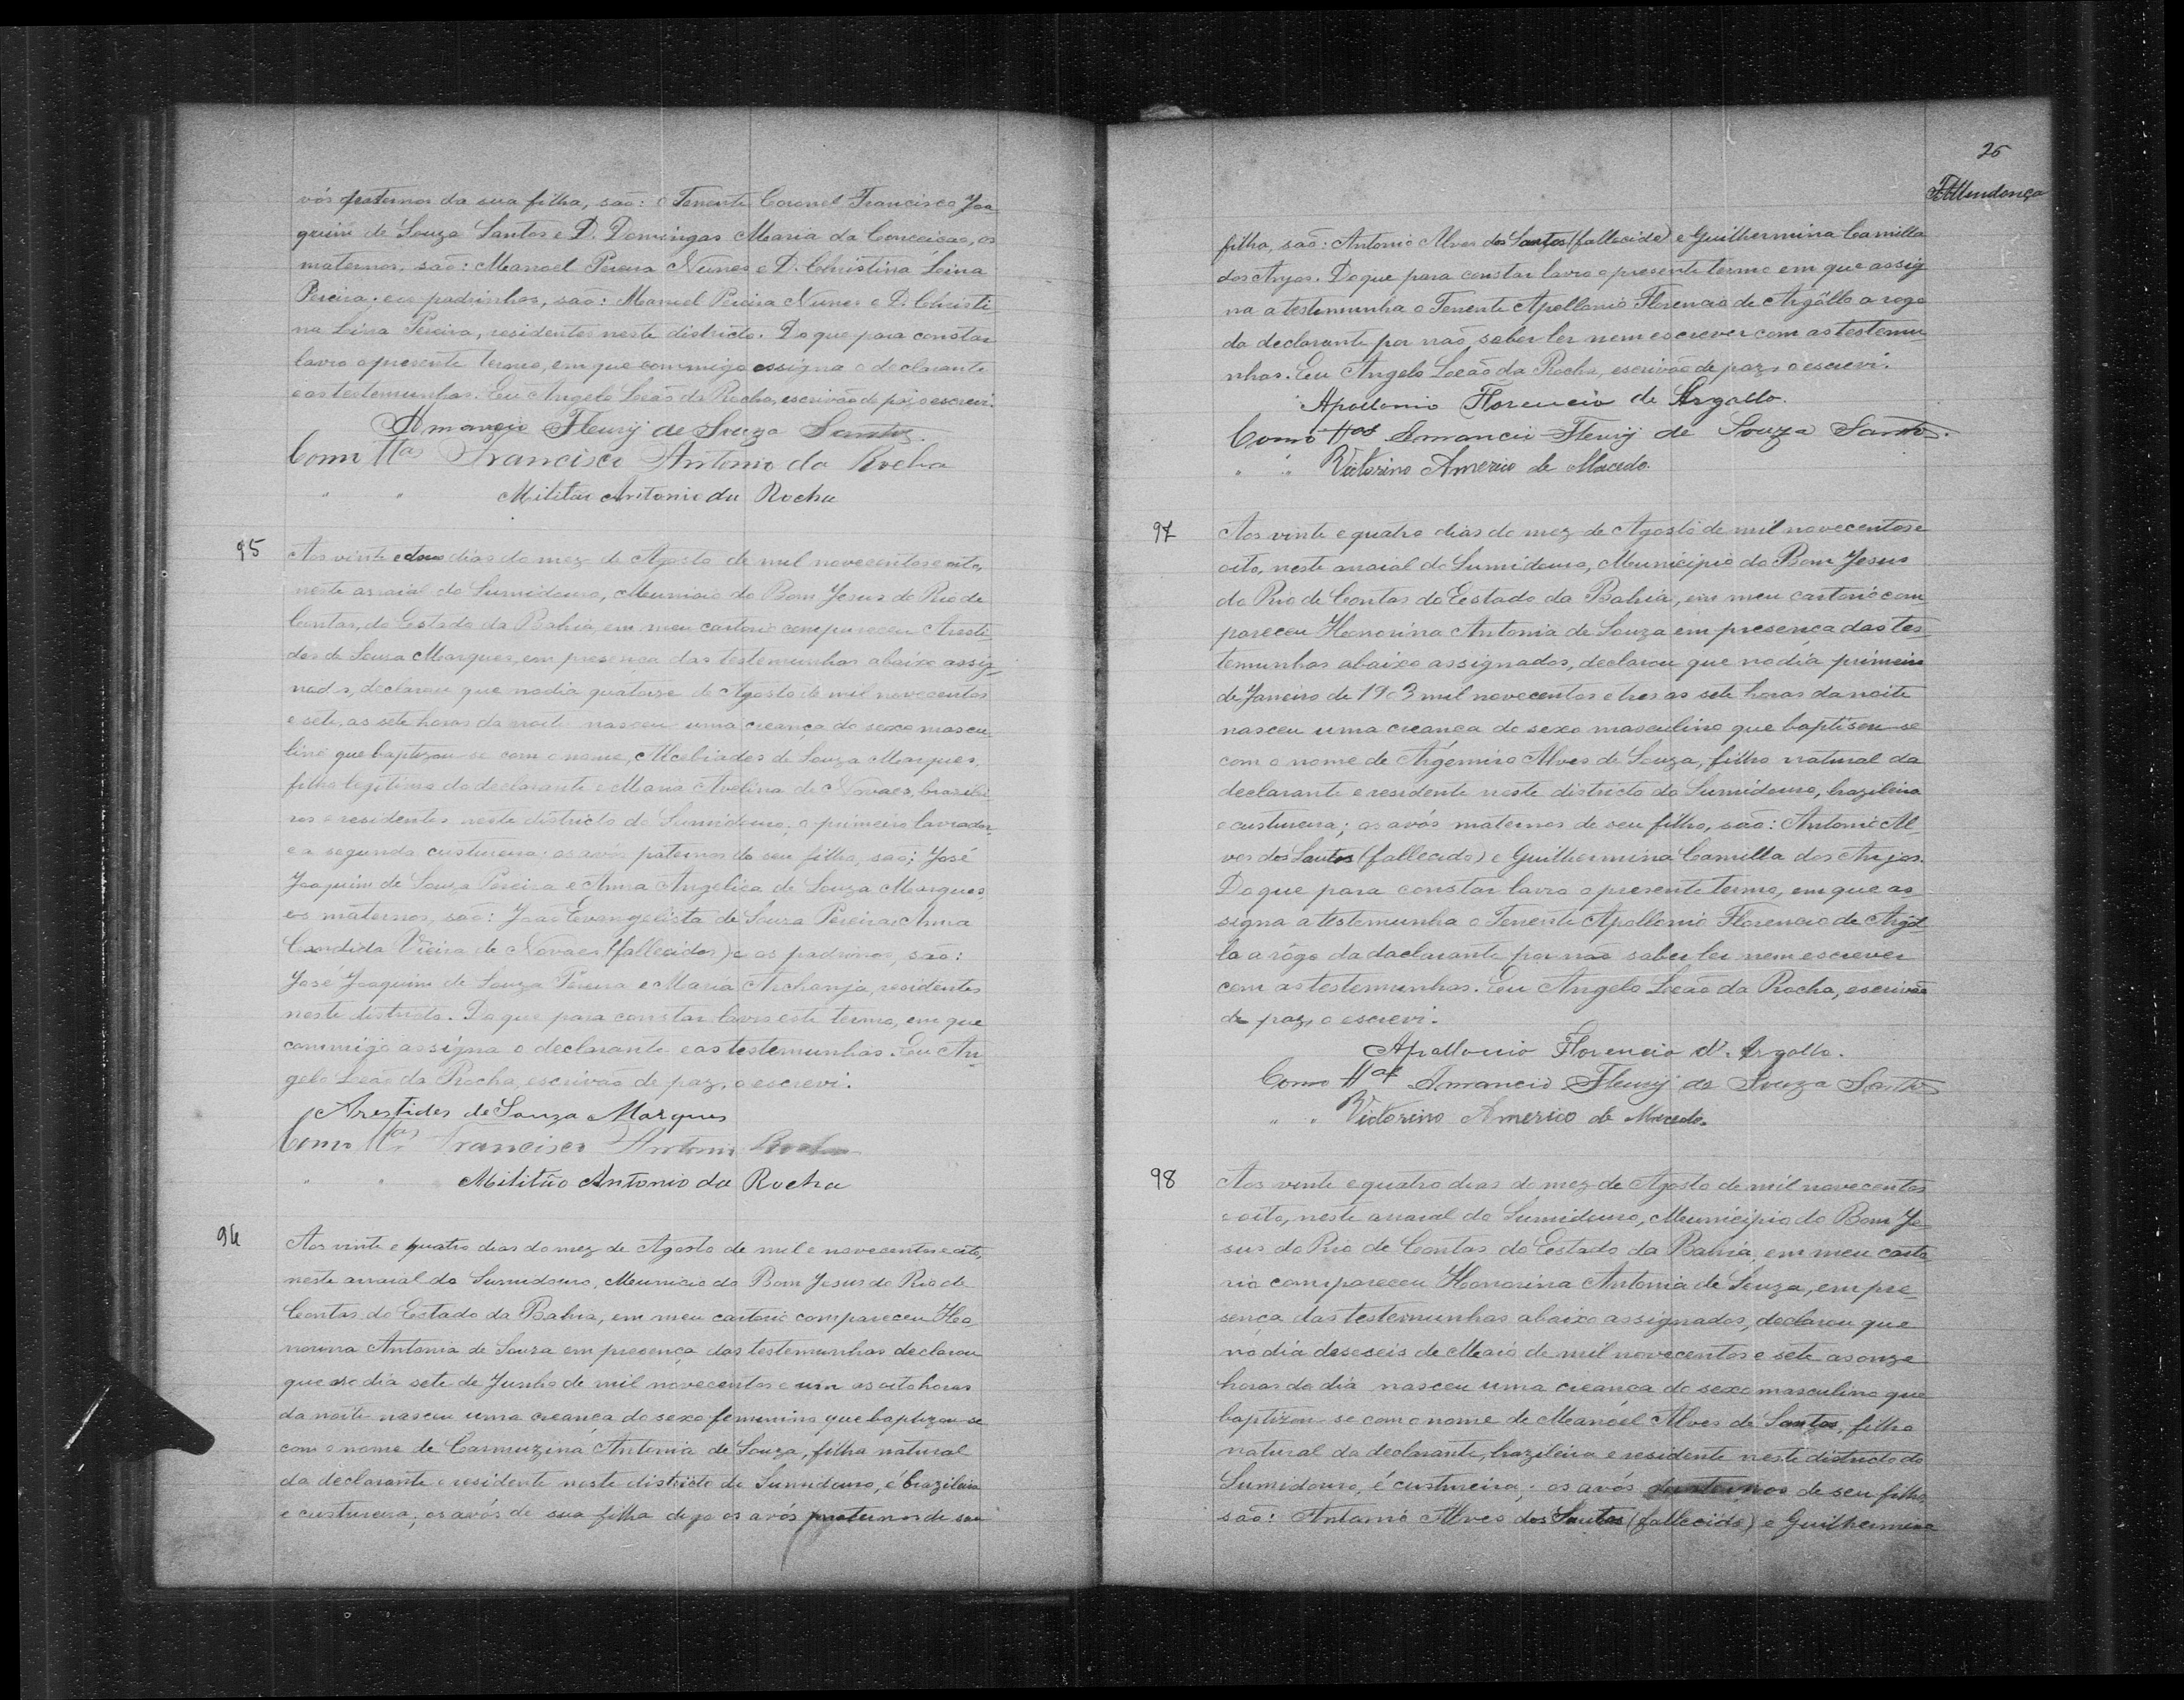 vós paternos da sua filha, são: o Tenente Coronel Francisco Joa
quim de Souza Santos e D. Domingas Maria da Conceicao, os
maternos, são: Manoel Pereira Nunes e D. Christina Leina
Pereira. e os padrinhos, são: Manuel Pereira Nunes e D. Christi
na Leina Pereira, residentes neste districto. Do que para constar
lavro o presente termo, em que commigo assigna o declarante
e as testemunhas. Eu Angelo Leão da Rocha, escrivão de paz, o escrevi.
Amancio Fleury de Souza Santos
Como ttas Francisco Antonio da Rocha
" " Militão Antonio da Rocha
95
Aos vinte e dous dias do mez de Agosto de mil novecentos e oito,
neste arraial do Sumidouro, Municio do Bom Jesus do Rio de
Contas, do Estado da Bahia, em meu cartorio compareceu Aresti
des de Souza Marques, em presença das testemunhas abaixo assig
nados, declarou que no dia quatorze de Agosto de mil novecentos
e sete, as sete horas da noite nasceu uma creança do sexo mascu
lino que baptizou-se com o nome, Alcebiades de Souza Marques,
filho legitimo do declarante e Maria Avelina de Novaes, brazilei
ros e residentes neste districto do Sumidouro; o primeiro lavrador
e a segunda custureira: os avós paternos do seu filho, são; José
Joaquim de Souza Pereira e Anna Angelica de Souza Marques,
os maternos, são: João Evangelista de Souza Pereira e Anna
Candida Vieira de Novaes (fallecidos) e os padrinos, são:
José Joaquim de Souza Pereira e Maria Archanja, residentes
neste districto. Do que para constar lavro este termo, em que
commigo assigna o declarante e as testemunhas. Eu An
gelo Leão da Rocha, escrivão de paz, o escrevi.
Arestides de Souza Marques
Como ttas Francisco Antonio Rocha
" " Militão Antonio da Rocha
96
Aos vinte e quatro dias do mez de Agosto de mil e novecentos e oito,
neste arraial do Sumidouro, Municio do Bom Jesus do Rio de
Contas, do Estado da Bahia, em meu cartorio compareceu Ho
norina Antonia de Souza em presença das testemunhas declarou
que no dia sete de Junho de mil novecentos e um as oito horas
da noite nasceu uma creança do sexo feminino que baptizou-se
com o nome de Carmuzina Antonia de Souza, filha natural
da declarante e residente neste districto de Sumidouro, é brazileira
e custureira; os avós de sua filha digo os avós maternos de sua
25
FMendonça
filha, são: Antonio Alves dos Santos (fallecido) e Guilhermina Camilla
dos Anjos. Do que para constar lavro o presente termo em que assig
na a testemunha o Tenente Apollonio Florencio de Argôllo a rogo
da declarante por não saber ler nem escrever com as testemu
nhas. Eu Angelo Leão da Rocha, escrivão de paz, o escrevi.
Apollonio Florencio de Argollo.
Como ttas Amancio Fleury de Souza Santos.
" " Victorino Americo de Macedo.
97
Aos vinte e quatro dias do mez de Agosto de mil novecentos e
oito, neste arraial do Sumidouro, Municipio do Bom Jesus
do Rio de Contas do Estado da Bahia, em meu cartorio com
pareceu Honorina Antonia de Souza em presença das tes
temunhas abaixo assignados, declarou que no dia primeiro
de Janeiro de 1903 mil novecentos e tres as sete horas da noite
nasceu uma creanca do sexo masculino que baptisou-se
com o nome de Argemiro Alves de Souza, filho natural da
declarante e residente neste districto do Sumidouro, brazileira
e custureira; os avós maternos de seu filho, são: Antonio Al
ves dos Santos (fallecido) e Guilhermina Camilla dos Anjos.
Do que para constar lavro o presente termo, em que as
signa a testemunha o Tenente Apollonio Florencio de Argôl
lo a rôgo da daclarante por não saber ler nem escrever
com as testemunhas. Eu Angelo Leão da Rocha, escrivão
de paz, o escrevi.
Apollonio Florencio d'Argollo.
Como ttas Amancio Fleury de Souza Santos
" " Victorino Americo de Macedo.
98
Aos vinte e quatro dias do mez de Agosto de mil novecentos
e oito, neste arraial do Sumidouro, Municipio do Bom Je
sus do Rio de Contas do Estado da Bahia, em meu carto
rio compareceu Honorina Antonia de Souza, em pre
sença das testemunhas abaixo assignados, declarou que
no dia deseseis de Maio de mil novecentos e sete as onze
horas do dia nasceu uma creança do sexo masculino que
baptizou-se com o nome de Manoel Alves de Santos, filho
natural da declarante, brazileira e residente neste districto do
Sumidouro, é custureira; os avós maternos de seu filho,
são: Antonio Alves dos Santos (fallecido) e Guilhermina